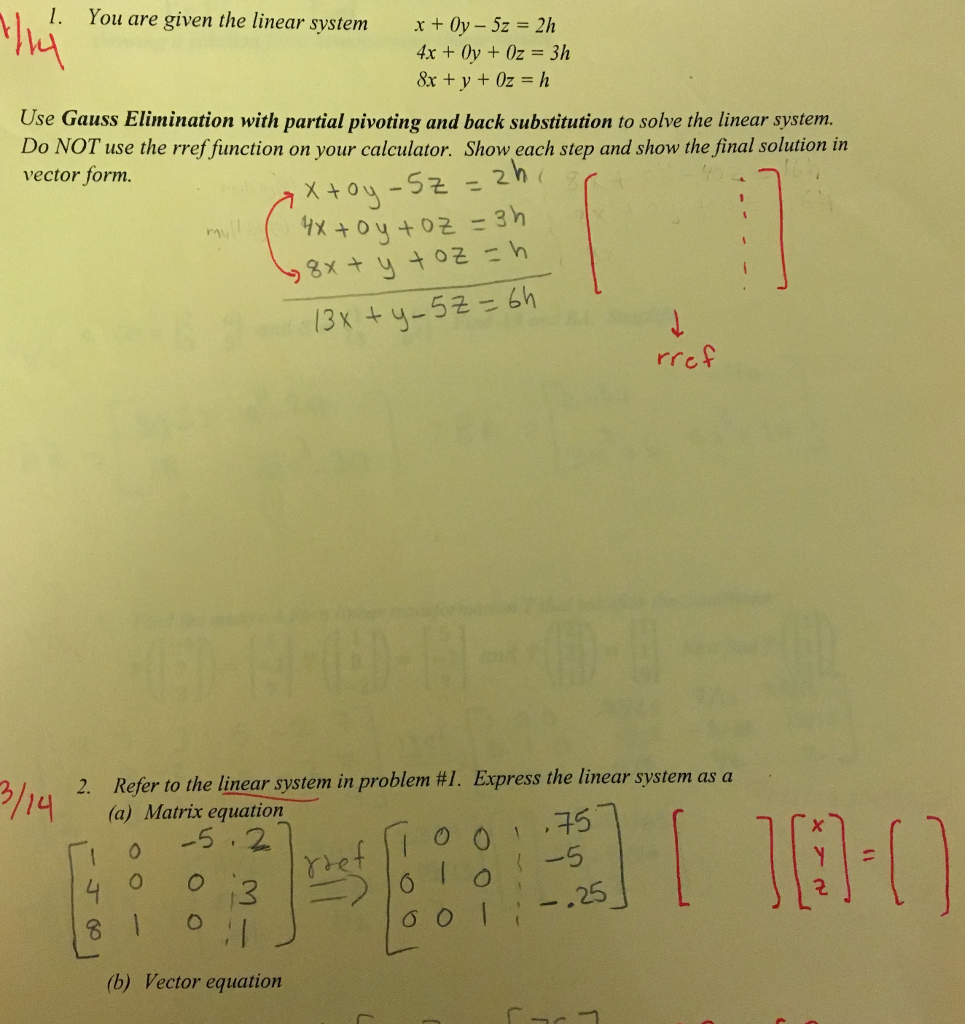 1. You are given the linear system x + 0y – 5z = 2h
4x + 0y + 0z = 3h
8x + y + 0z = h
Use Gauss Elimination with partial pivoting and back substitution to solve the linear system.
Do NOT use the rref function on your calculator. Show each step and show the final solution in
vector form.
x + 0y - 5z = 2h
4x + 0y + 0z = 3h
8x + y + 0z = h
13x + y - 5z = 6h
rref
3/14
2. Refer to the linear system in problem #1. Express the linear system as a
(a) Matrix equation
1 0 -5 2 1 0 0 .75 x
4 0 0 3 rref 0 1 0 -5 y =
8 1 0 1 0 0 1 -.25 z
(b) Vector equation